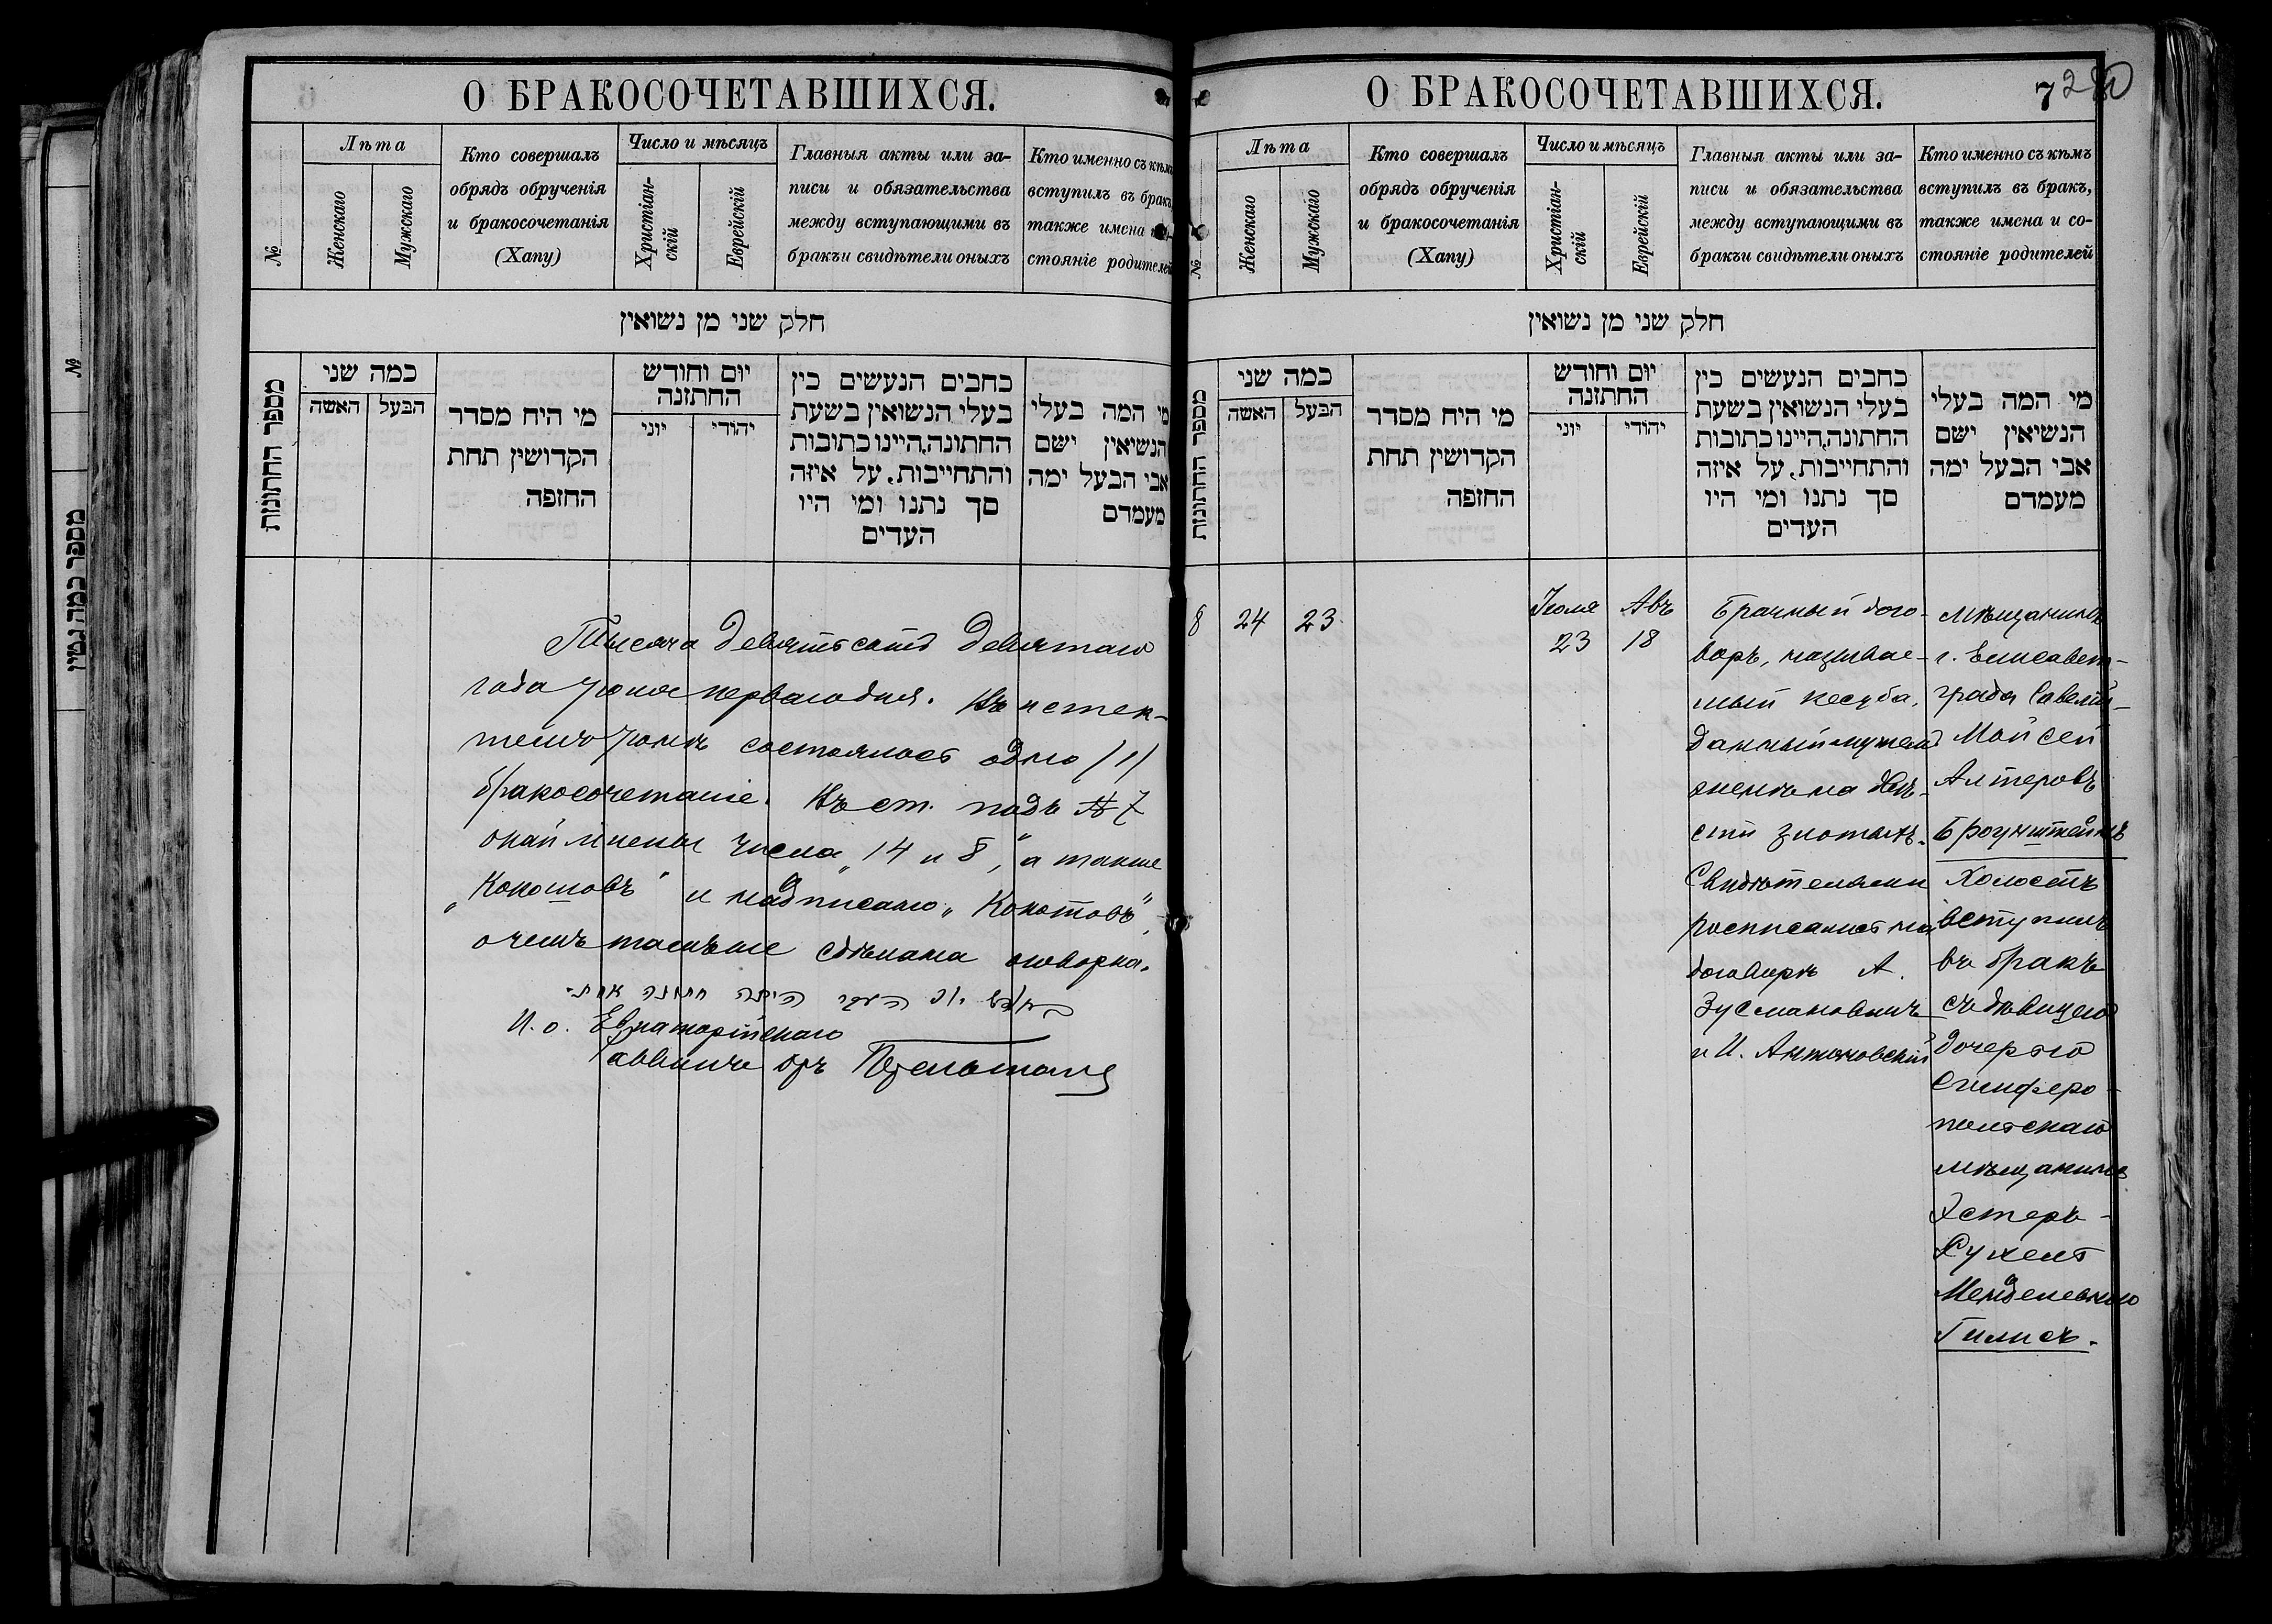 О БРАКОСОЧЕТАВШИХСЯ.
№
Лѣта
Женскаго
Мужскаго
Кто совершалъ
обрядъ обрученія
и бракосочетанія
(Хапу)
Число и мѣсяцъ
Христіан-
скій
Еврейскій
Главныя акты или за-
писи и обязательства
между вступающими въ
бракъ и свидѣтели оныхъ
Кто именно съ кѣмъ
вступилъ въ бракъ,
также имена и со-
стояніе родителей
חלק שני מן נשואין
מספר החתונות
כמה שני
האשה
הבעל
מי היח מסדר
הקדושין תחת
החזפה
יום וחודש
החתזנה
יוני
יהודי
כחבים הנעשים כין
בעלי הנשואין בשעת
החתונה,היינו כתובות
והתחייבות, על איזה
סך נתנו ומי היו
העדים
מי המה בעלי
הנשיאין ישם
אבי הבעל ימה
מעמדם
Тысяча девятьсотъ девятаго
года Іюля перваго дня. Въ истек-
шемъ Іюнѣ состоялось одно /1/
бракосочетаніе. Въ ст. подъ № 7
окаймлены числа „14 и 8“, а также
„Кокошовъ“ и надписано „Кокотовъ“,
о чемъ тамъ же сдѣлана оговорка.
И. о. Евпаторійскаго
Раввина др. Перельманъ
О БРАКОСОЧЕТАВШИХСЯ.
7
280
№
Лѣта
Женскаго
Мужскаго
Кто совершалъ
обрядъ обрученія
и бракосочетанія
(Хапу)
Число и мѣсяцъ
Христіан-
скій
Еврейскій
Главныя акты или за-
писи и обязательства
между вступающими въ
бракъ и свидѣтели оныхъ
Кто именно съ кѣмъ
вступилъ въ бракъ,
также имена и со-
стояніе родителей
חלק שני מן נשואין
מספר החתונות
כמה שני
האשה
הבעל
מי היח מסדר
הקדושין תחת
החזפה
יום וחודש
החתזנה
יוני
יהודי
כחבים הנעשים כין
בעלי הנשואין בשעת
החתונה,היינו כתובות
והתחייבות, על איזה
סך נתנו ומי היו
העדים
מי המה בעלי
הנשיאין ישם
אבי הבעל ימה
מעמדם
8
24
23
Іюля
23
Авъ
18
Брачный дого-
воръ, называе-
мый кесуба,
данный мужемъ
женѣ на двѣ-
сти злотыхъ.
Свидѣтелями
росписались на
договорѣ А.
Зусмановичъ
и И. Антоновскій
Мѣщанинъ
г. Елисавет-
града Савелій-
Мойсей
Алтеровъ
Броунштейнъ
Холостъ
вступилъ
въ бракъ
съ дѣвицею
дочерью
Симферо-
польскаго
мѣщанина
Эстеръ-
Рухель
Менделевною
Гилисъ.
№
מספר כמה גטין